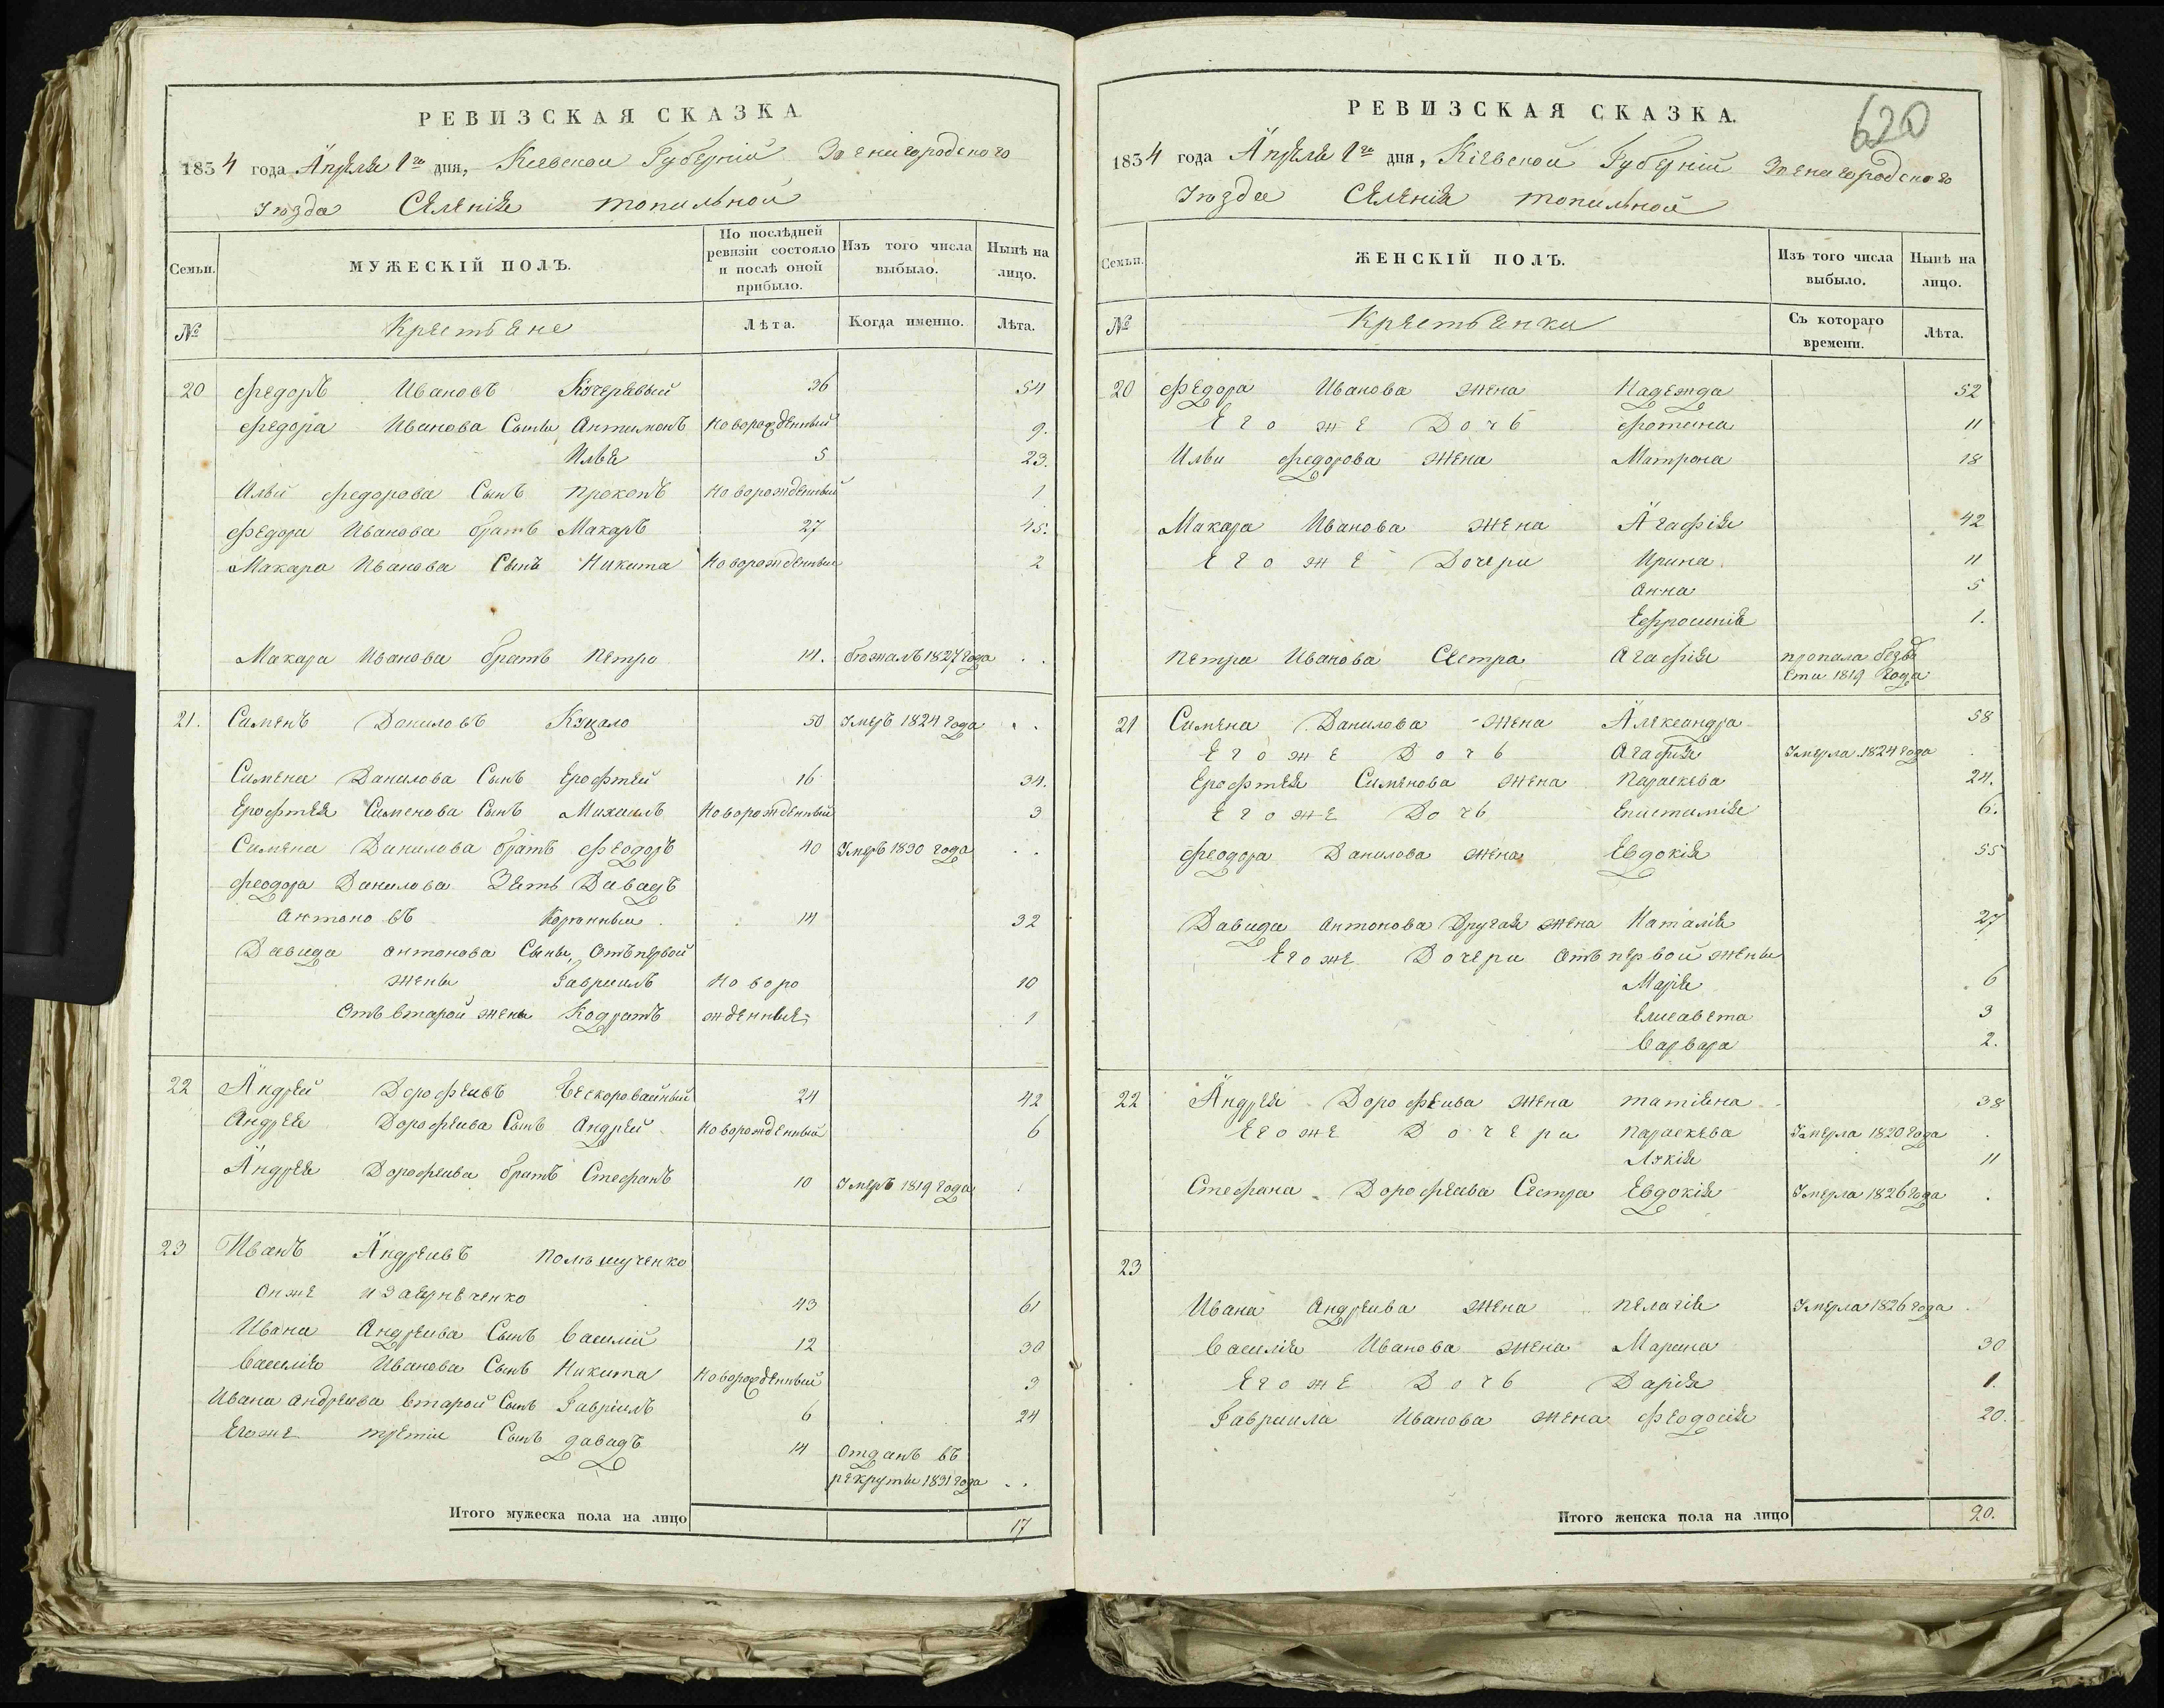 РЕВИЗСКАЯ СКАЗКА
1834 года Апреля 1го дня, Киевской Губерніи Звенигородского
Уѣзда Селенія Топильной
Семьи.
МУЖЕСКІЙ ПОЛЪ.
По послѣдней ревизіи состояло и послѣ оной прибыло.
Изъ того числа выбыло.
Нынѣ на лицо.
№
Крестьяне
Лѣта.
Когда именно.
Лѣта.
20 Федоръ Ивановъ Кучерявый 36 54
Федора Ивановa Сыны Антимонъ Новорожденный 9.
Илья 5 23.
Ильи Федорова Сынъ Прокопъ Новорожденный 1
Федора Иванова братъ Макаръ 27 45.
Макара Иванова Сынъ Никита Новорожденный 2
Макара Иванова братъ Петро 14. бежалъ 1827 года . .
21. Сименъ Даниловъ 50 Умеръ 1824 года . .
Симена Данилова Сынъ Ерофтей 16 34.
Ерофтея Сименова Сынъ Михаилъ Новорожденный 3
Симена Данилова братъ Феодоръ 40 Умеръ 1830 года . .
Феодора Данилова Зять Давадъ
Антоновъ 14 32
Давида Антонова Сыны, Отъ первой
жены Гавриилъ Новоро 10
Отъ второй жены Кодратъ жденные 1
22 Андрей Дорофеивъ Бескоровайный 24 42
Андрея Дорофеива Сынъ Андрей Новорожденный 6
Андрея Дорофеива братъ Стефанъ 10 Умеръ 1819 года .
23 Иванъ Андреивъ
Онже 43 61
Ивана Андреива Сынъ Василий 12 30
Василія Иванова Сынъ Никита Новорожденный 3
Ивана Андреива второй Сынъ Гавріилъ 6 24
Егоже третіи Сынъ Давадъ 14 Отданъ въ
рекруты 1831 года . .
Итого мужеска пола на лицо 17
620
РЕВИЗСКАЯ СКАЗКА.
1834 года Апреля 1го дня, Кіевской Губерніи Звенигородского
Уѣзда Селенія Топильной
Семьи.
ЖЕНСКІЙ ПОЛЪ.
Изъ того числа выбыло.
Нынѣ на лицо.
№
Крестьянки
Съ котораго времени.
Лѣта.
20 Федора Иванова жена Надежда 52
Егоже Дочь Фотина 11
Ильи Федорова жена Матрона 18
Макара Иванова жена Агафія 42
Егоже Дочери Ирина 11
Анна 5
Ефросинія 1.
Петра Иванова Сестра Агафія пропала безвѣ
сти 1819 года
21 Симена Данилова жена Александра 58
Егоже Дочь Агафія Умерла 1824 года .
Ерофтея Сименова жена Параскева 24.
Егоже Дочь Епистимія 6.
Феодора Данилова жена Евдокія 55
Давида Антонова Другая жена Наталія 27
Егоже Дочери Отъ первой жены
Марія 6
Елисавета 3
Варвара 2.
22 Андрея Дорофеива жена Татіана 38
Егоже Дочери Параскева Умерла 1820 года .
11
Стефана Дорофеива Сестра Евдокія Умерла 1826 года .
23
Ивана Андреива жена Пелагія Умерла 1826 года .
Василія Иванова жена Марина 30
Егоже Дочь Дарія 1.
Гавриила Иванова жена Феодосія 20.
Итого женска пола на лицо 20.